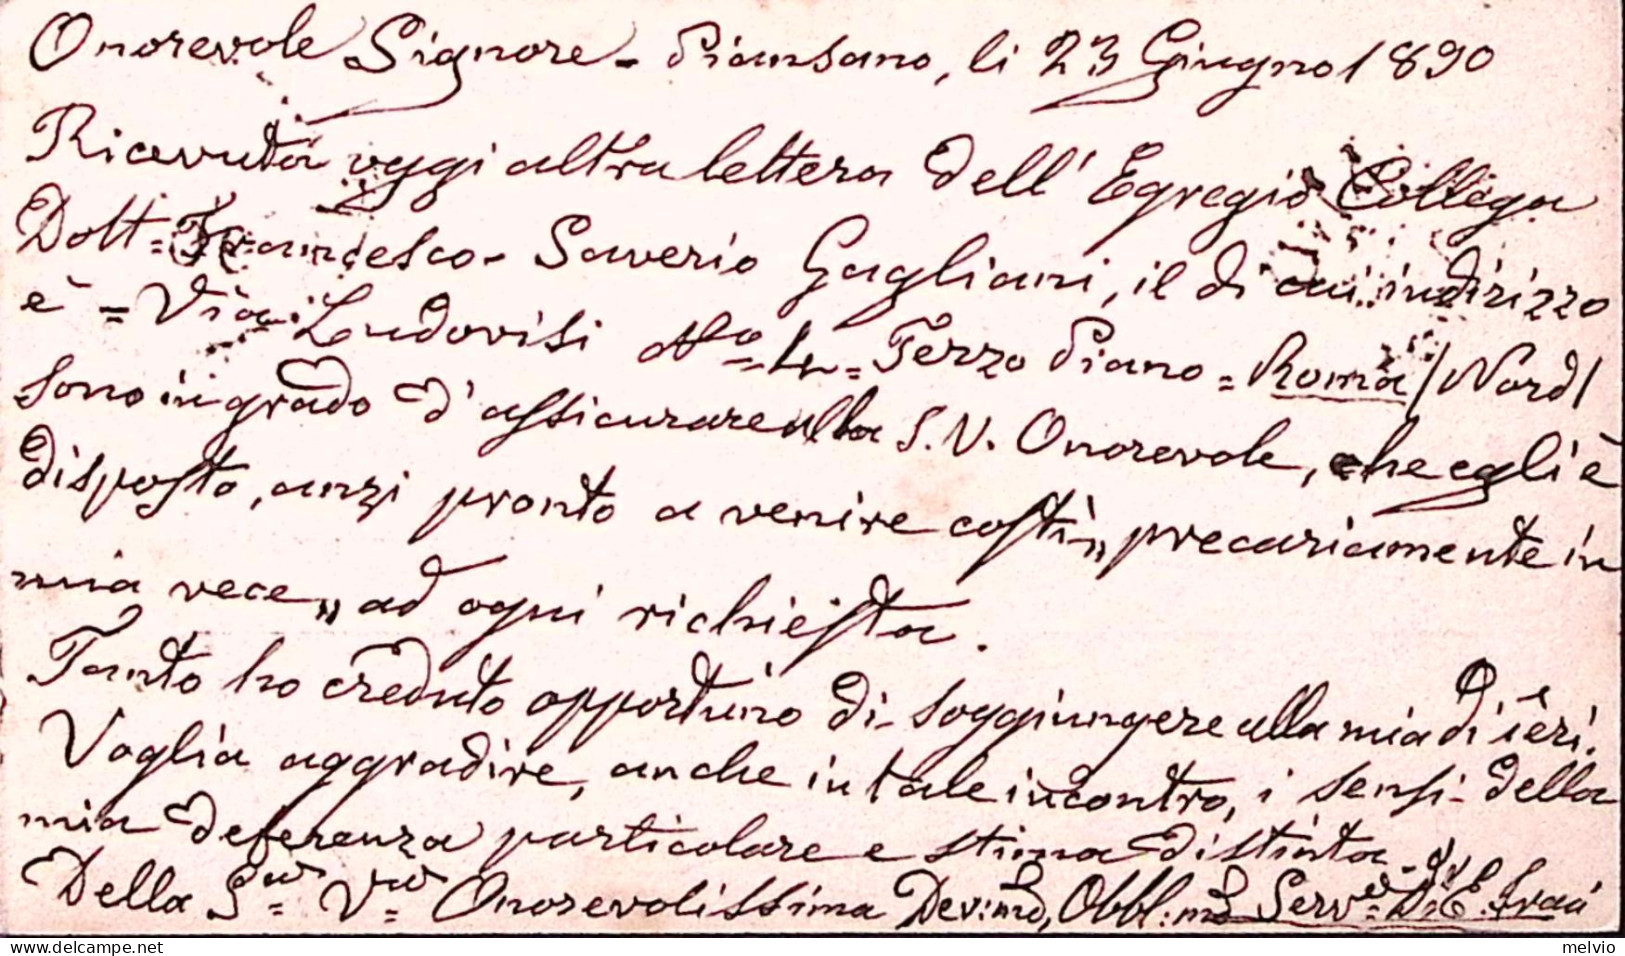 Onorevole Signore - Piansano, li 23 Giugno 1890
Ricevuta oggi altra lettera dell' Egregio Collega
Dott = Francesco - Saverio Gagliani, il di cui indirizzo
è = Via Ludovisi No = 4 = Terzo Piano = Roma / Nord /
sono in grado d'assicurare alla S. V. Onorevole, che egli è
disposto, anzi pronto a venire costì „ precariamente in
mia vece „ ad ogni richiesta.
Tanto ho creduto opportuno di soggiungere alla mia di ieri.
Voglia aggradire, anche in tale incontro, i sensi della
mia deferenza particolare e stima distinta
Della Sua = Va = Onorevolissima Dev:mo, Obbl:mo Serve =
melvio